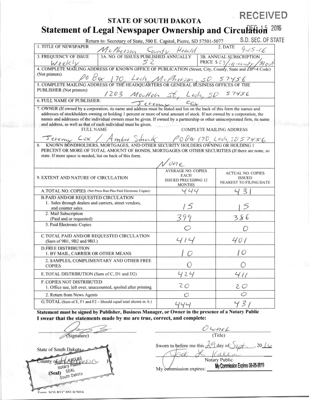 RECEIVED
STATE OF SOUTH DAKOTA
Statement of Legal Newspaper Ownership and Circulation
Return to: Secretary of State, 500 E. Capitol, Pierre, SD 57501-5077
S.D. SEC. OF STATE
1. TITLE OF NEWSPAPER
McPherson County Herald
2. DATE
9-15-16
3. FREQUENCY OF ISSUE
Weekly
3A. NO. OF ISSUES PUBLISHED ANNUALLY
52
3B. ANNUAL SUBSCRIPTION PRICE
4. COMPLETE MAILING ADDRESS OF KNOWN OFFICE OF PUBLICATION (Street, City, County, State and ZIP+4 Code) (Not printers)
PO Box 170 Leola, McPherson SD 57456
5. COMPLETE MAILING ADDRESS OF THE HEADQUARTERS OR GENERAL BUSINESS OFFICES OF THE PUBLISHER (Not printer)
Leola, SD 57456
6. FULL NAME OF PUBLISHER:
Jeremy Cox
7. OWNER (If owned by a corporation, its name and address must be stated and list on the back of this form the names and
addresses of stockholders owning or holding 1 percent or more of total amount of stock. If not owned by a corporation, the
names and addresses of the individual owners must be given. If owned by a partnership or other unincorporated firm, its name
and address, as well as that of each individual must be given.
FULL NAME
COMPLETE MAILING ADDRESS
Jeremy Cox / PO Bx 170 Leola SD 57456
8. KNOWN BONDHOLDERS, MORTGAGES, AND OTHER SECURITY HOLDERS OWNING OR HOLDING 1
PERCENT OR MORE OF TOTAL AMOUNT OF BONDS, MORTGAGES OR OTHER SECURITIES (If there are none, so
state. If more space is needed, list on back of this form.
None
9. EXTENT AND NATURE OF CIRCULATION
AVERAGE NO. COPIES EACH ISSUED PRECEDING 12 MONTHS
ACTUAL NO. COPIES ISSUED NEAREST TO FILING DATE
A. TOTAL NO. COPIES (Net Press Run Plus Paid Electronic Copies) 444 431
B. PAID AND/OR REQUESTED CIRCULATION
1. Sales through dealers and carriers, street vendors, and counter sales 15 15
2. Mail Subscription (Paid and/or requested) 399 386
3. Paid Electronic Copies 0 0
C. TOTAL PAID AND/OR REQUESTED CIRCULATION (Sum of 9B1, 9B2 and 9B3) 414 401
D. FREE DISTRIBUTION
1. BY MAIL, CARRIER OR OTHER MEANS 10 10
2. SAMPLES, COMPLIMENTARY AND OTHER FREE COPIES 0 0
E. TOTAL DISTRIBUTION (Sum of C, D1 and D2) 424 411
F. COPIES NOT DISTRIBUTED
1. Office use, left over, unaccounted, spoiled after printing 20 20
2. Return from News Agents 0 0
G. TOTAL (Sum of E, F1 and F2 - Should equal total shown in A) 444 431
Statement must be signed by Publisher, Business Manager, or Owner in the presence of a Notary Public
I swear that the statements made by me are true, correct, and complete:
(Signature)
Owner
(Title)
State of South Dakota
Sworn to before me this day of Sept. 2016
NOTARY PUBLIC
(Seal) SEAL
South Dakota
Notary Public
My commission expires: My Commission Expires